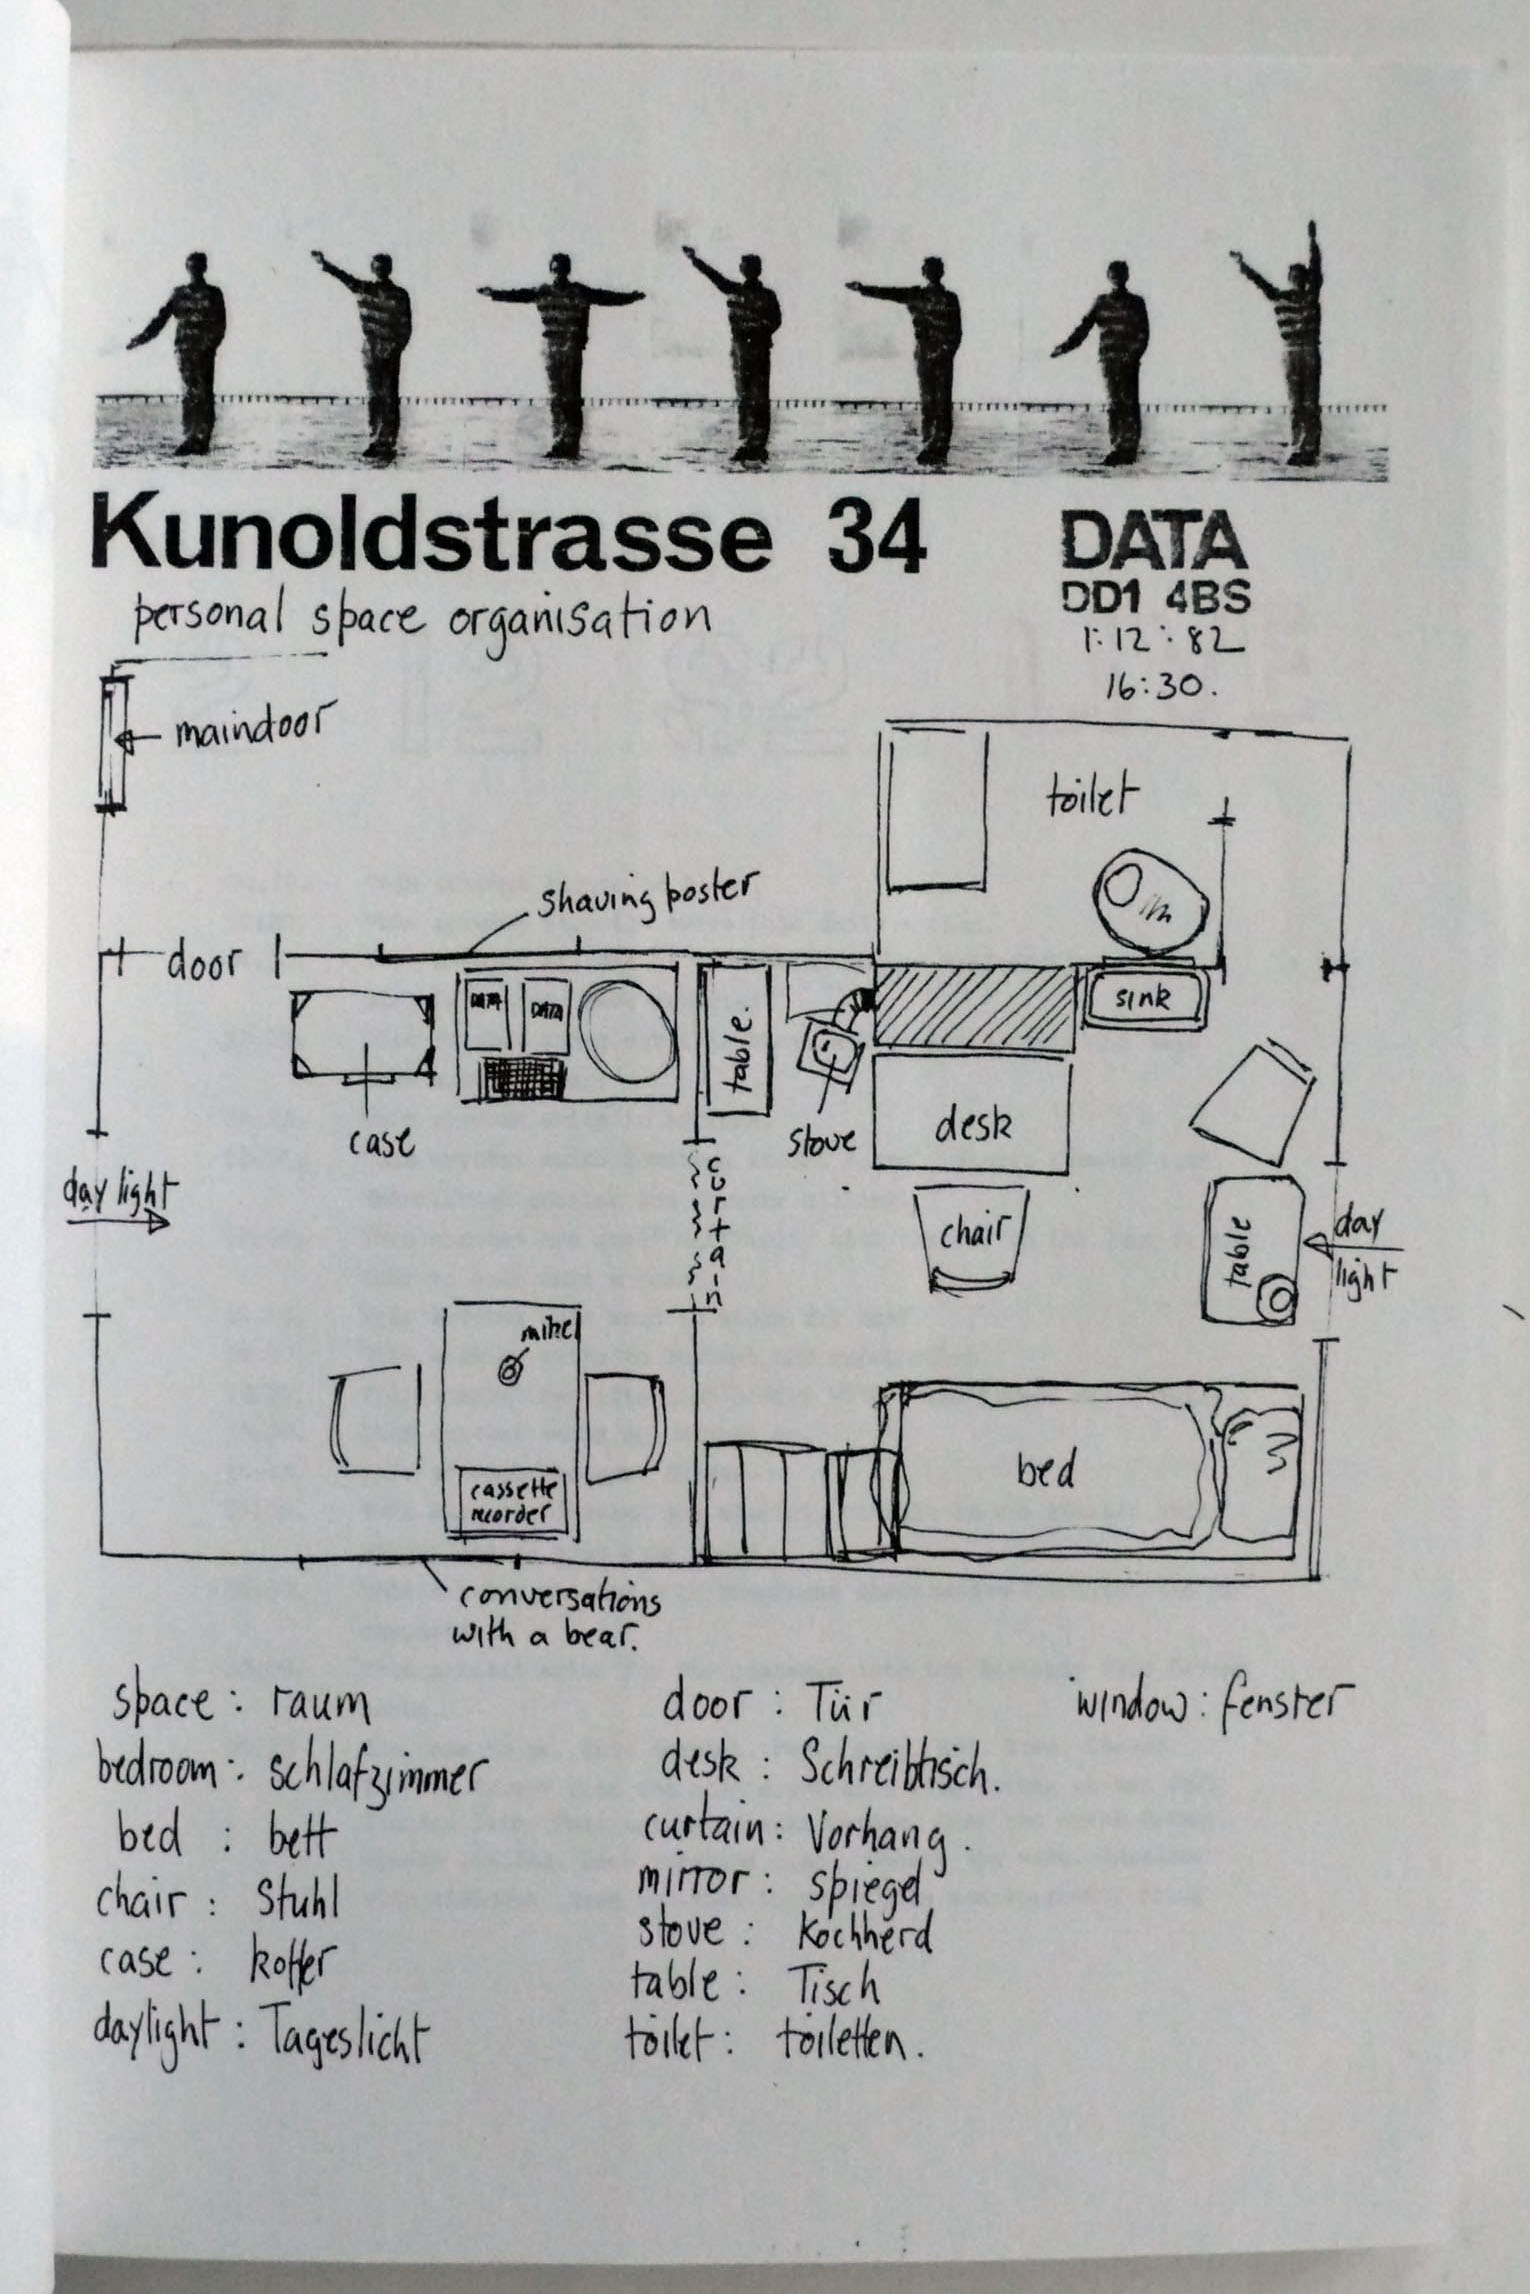 Kunoldstrasse 34
DATA
DD1 4BS
1:12:82
16:30.
personal space organisation
maindoor
toilet
shaving poster
door
DATA
DATA
table.
sink
case
stove
desk
daylight
curtain
chair
table
day
light
mike
cassette
recorder
bed
conversations
with a bear.
space: raum
bedroom: schlafzimmer
bed : bett
chair : Stuhl
case : koffer
daylight : Tageslicht
door : Tür
desk : Schreibtisch.
curtain: Vorhang.
mirror: spiegel
stove : Kochherd
table : Tisch
toilet : toiletten.
window: fenster